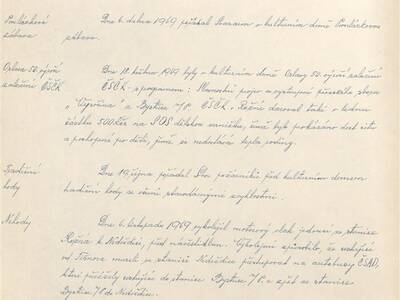 Pomlázková
zábava
Dne 6. dubna 1969 pořádal Svazarm v kulturním domě Pomlázkovou
zábavu.
Oslava 50. výročí
založení ČSČK
Dne 18. května 1969 byly v kulturním domě Oslavy 50. výročí založení
ČSČK - s programem: Slavnostní projev a vystoupení pěveckého sboru
z "Vírečína" a Bystřice n/P. ČSČK v Rožné daroval také v lednu
částku 500 Kčs na SOS dětskou vesničku, čímž bylo prokázáno dost citu
a pochopení pro děti, jimž se nedostává tepla rodiny.
Tradiční
hody
Dne 19. října pořádal Sbor požárníků před kulturním domem
tradiční hody se všemi starodávnými zvyklostmi.
Nehody
Dne 6. listopadu 1969 vykolejil motorový vlak jedoucí ze stanice
Rožná k Nedvědici, před nádražím. Vykolejení způsobilo, že cestující
od Tišnova museli ve stanici Nedvědice přestupovat na autobusy ČSAD,
které převážely cestující do stanice Bystřice n/P. a zpět ze stanice
Bystřice n/P do Nedvědice.